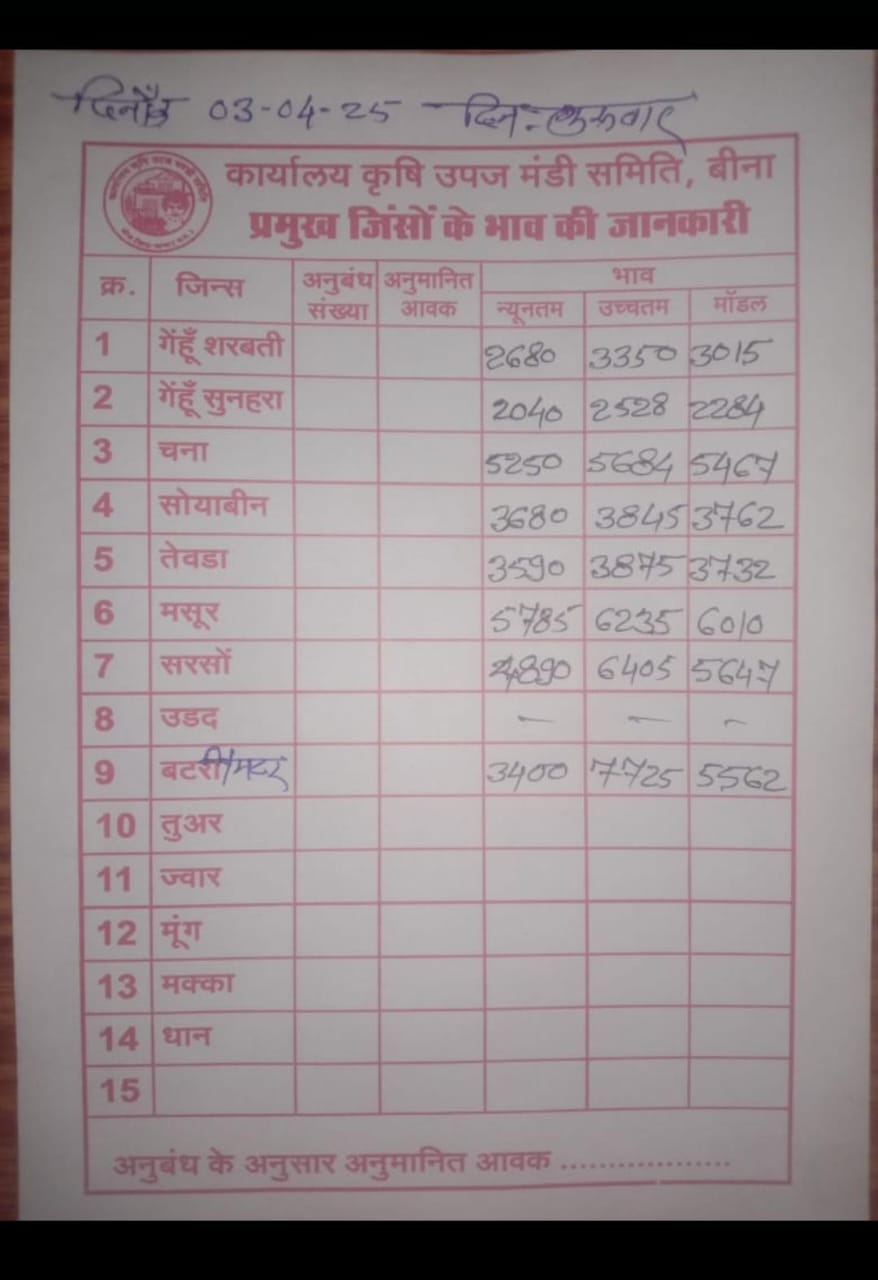 दिनाँक 03-04-25 दिन:-
कार्यालय कृषि उपज मंडी समिति, बीना
प्रमुख जिंसों के भाव की जानकारी
क्र. जिन्स अनुबंध संख्या अनुमानित आवक भाव
न्यूनतम उच्चतम मॉडल
1 गेंहूँ शरबती 2680 3350 3015
2 गेंहूँ सुनहरा 2040 2528 2284
3 चना 5250 5684 5467
4 सोयाबीन 3680 3845 3762
5 तेवडा 3590 3875 3732
6 मसूर 5785 6235 6010
7 सरसों 4890 6405 5647
8 उडद - - -
9 बटरी/मटर 3400 7725 5562
10 तुअर
11 ज्वार
12 मूंग
13 मक्का
14 धान
15
अनुबंध के अनुसार अनुमानित आवक ..................